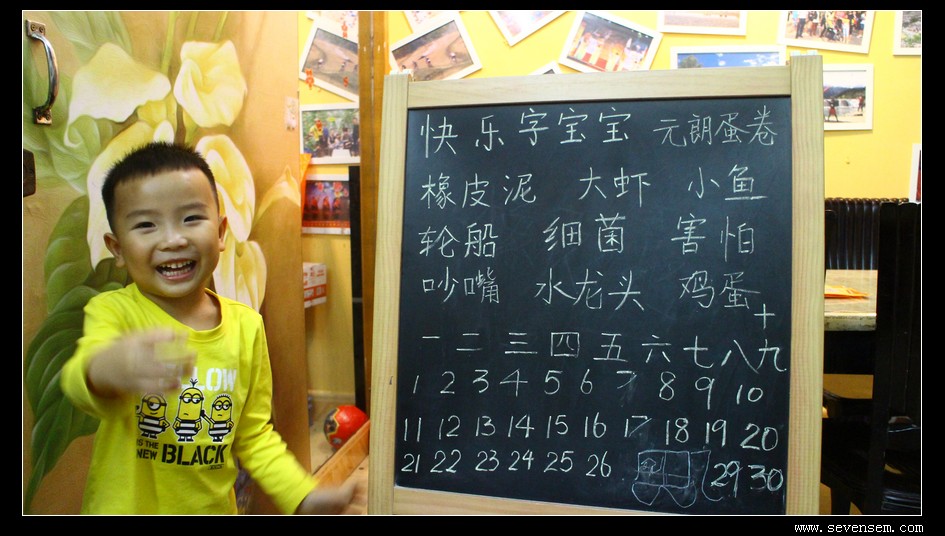 快 乐 字宝宝 元朗蛋卷
橡皮泥 大虾 小鱼
轮船 细菌 害怕
吵嘴 水龙头 鸡蛋
一 二 三 四 五 六 七 八 九 十
1 2 3 4 5 6 7 8 9 10
11 12 13 14 15 16 17 18 19 20
21 22 23 24 25 26 29 30
YELLOW
IS THE
NEW BLACK
www.sevensem.com